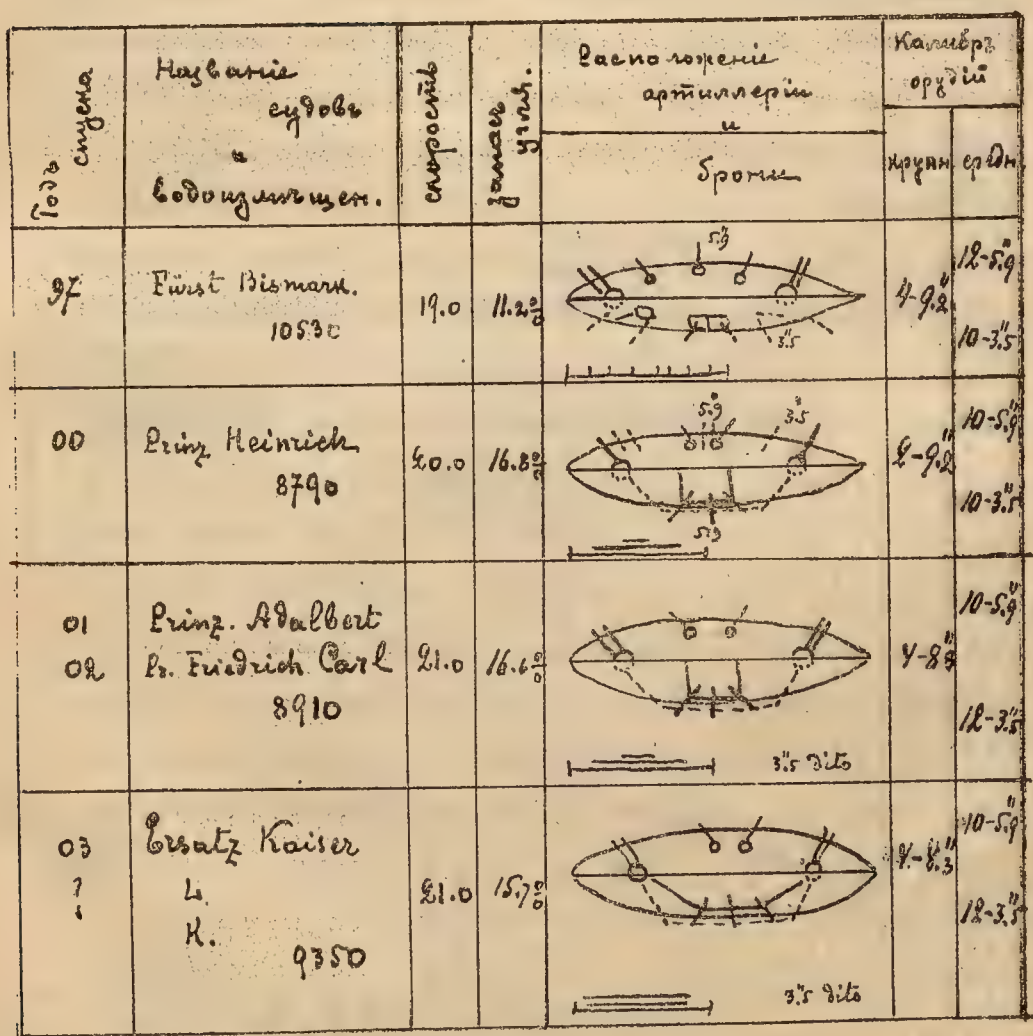 Годъ спуска
Названіе
судовъ
и
водоизмѣщен.
скорость
Запасъ угля.
Расположеніе
артиллеріи
и
брони
Калибръ
орудій
крупн.
средн.
97
Fürst Bismark.
10530
19.0
11.2%
5."9
3."5
4-9."2
12-5."9
10-3."5
00
Prinz Heinrich
8790
20.0
16.8%
5."9
3."5
5."9
2-9."2
10-5."9
10-3."5
01
02
Prinz. Adalbert
Pr. Friedrich Carl
8910
21.0
16.6%
3."5 dito
10-5."9
12-3."5
03
?
Ersatz Kaiser
L.
K.
9350
21.0
15.7%
3."5 dito
10-5."9
12-3."5